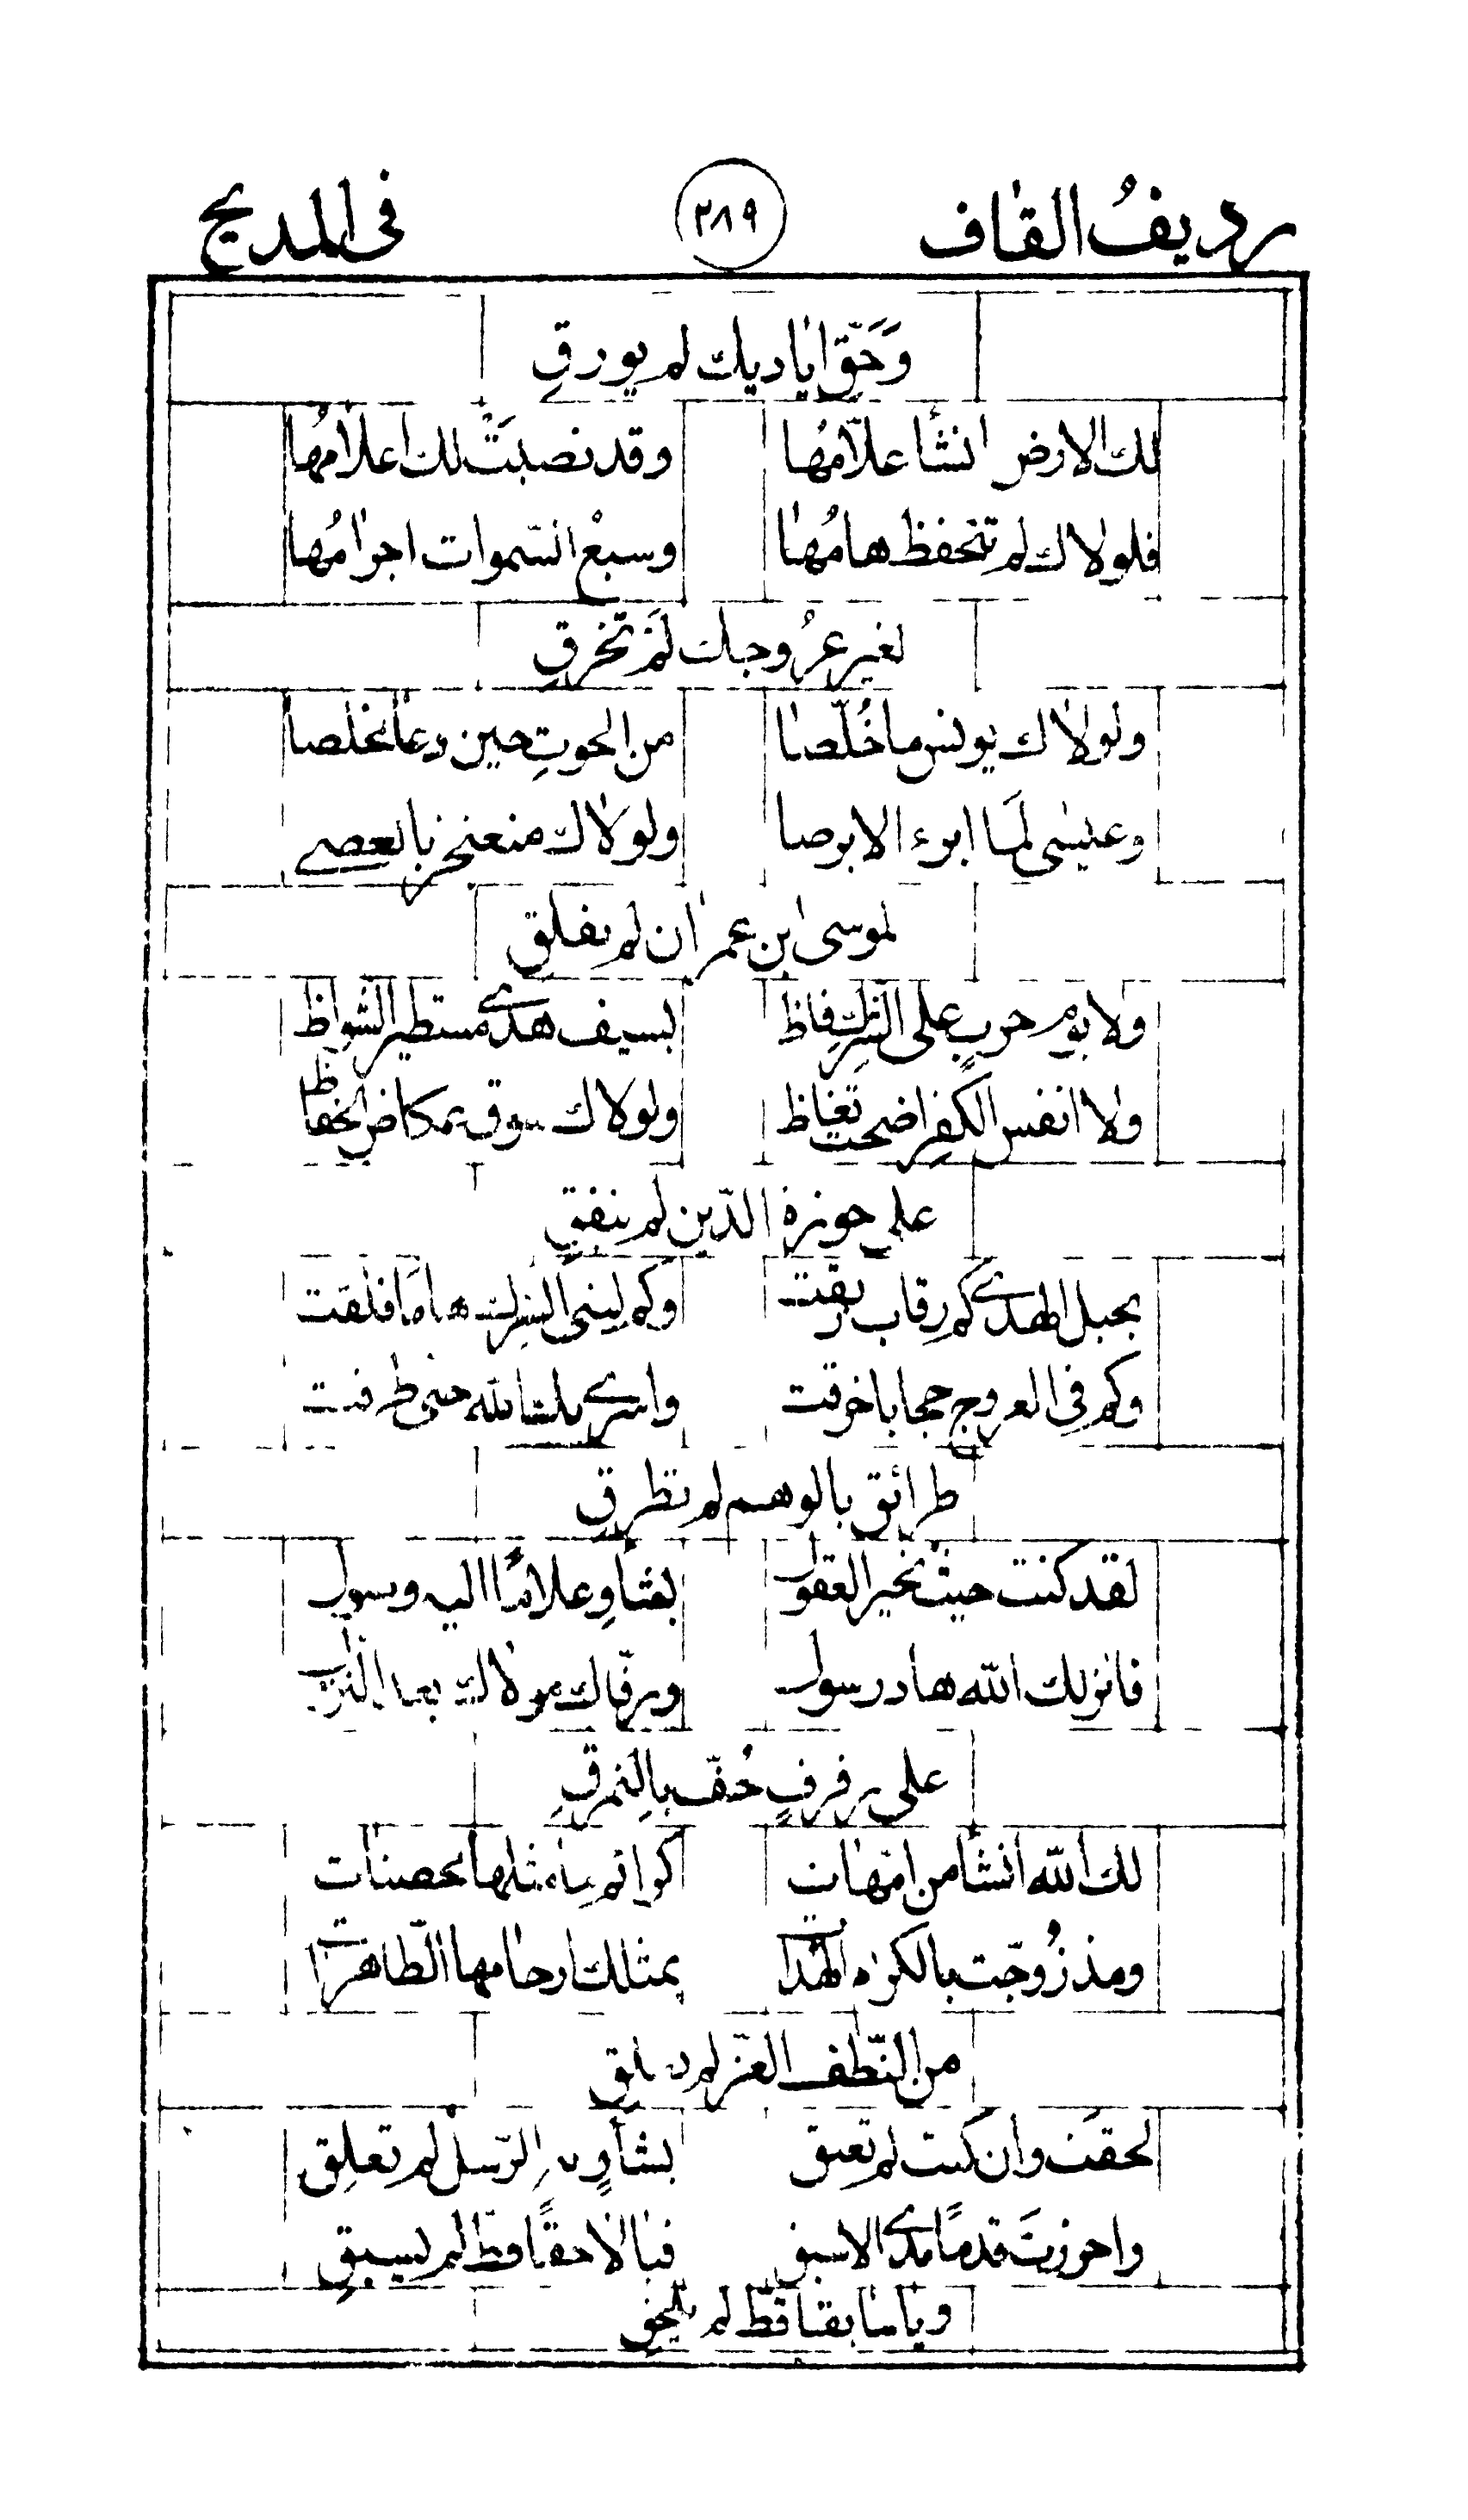 رديفُ القاف ٢٨٩ في المديح
وَحَقّ اياديك لم يورقِ
لك الارض انشأ علاّمُها وقد نصبَتْ لك اعلامُها
فلولاك لم تنحفظ هامُها وسبعُ السّموات اجرامُها
لغير عرُوجك لَمْ تخرقِ
ولولاك يونس ما خُلّصا من الحوتِ حين دعا مخلصا
وعيسٰى لمَا ابرء الابرصا ولولاك منعنجز بالعصے
لموسى ابن عمران لم يفلقِ
ولا يوم حربٍ على الشرك فاظ بسيف هدى مستطير الشواظ
ولا انفس الكفر اضحت تغاظ ولولاك سوق عكاظ الحفاظ
على حوزة الدّين لم ينفقِ
بحبل الهدى كم رقاب رقت وكم لبنى الشرك هامًا فلقت
وكم في العروج حجابا خرقت واسرى بك الله حتى طرقت
طرائق بالوهم لم تطرقِ
لقد كنت حيث تحير العقول بشأوِ علا ما اليه وصول
فانزلك الله هاد رسول ورقّاك مولاك بعد النزول
على رفرفٍ حُفّ بالنمرقِ
لك الله انشأ من امّهات كرائم ما مثلها محصنات
ومذ زُوّجت بالكرام الهُداة بمثلك ارحامها الطّاهرات
من النّطف الغرّ لم تعلق
لحقتَ وان كنت لم تعبق بشأوٍ به الرّسل لم تعلقِ
واحرزتَ قدمًا مدى الاسبق فيا لاحقًا قطّ لم يسبقِ
ويا سابقا قطّ لم يلحقِ